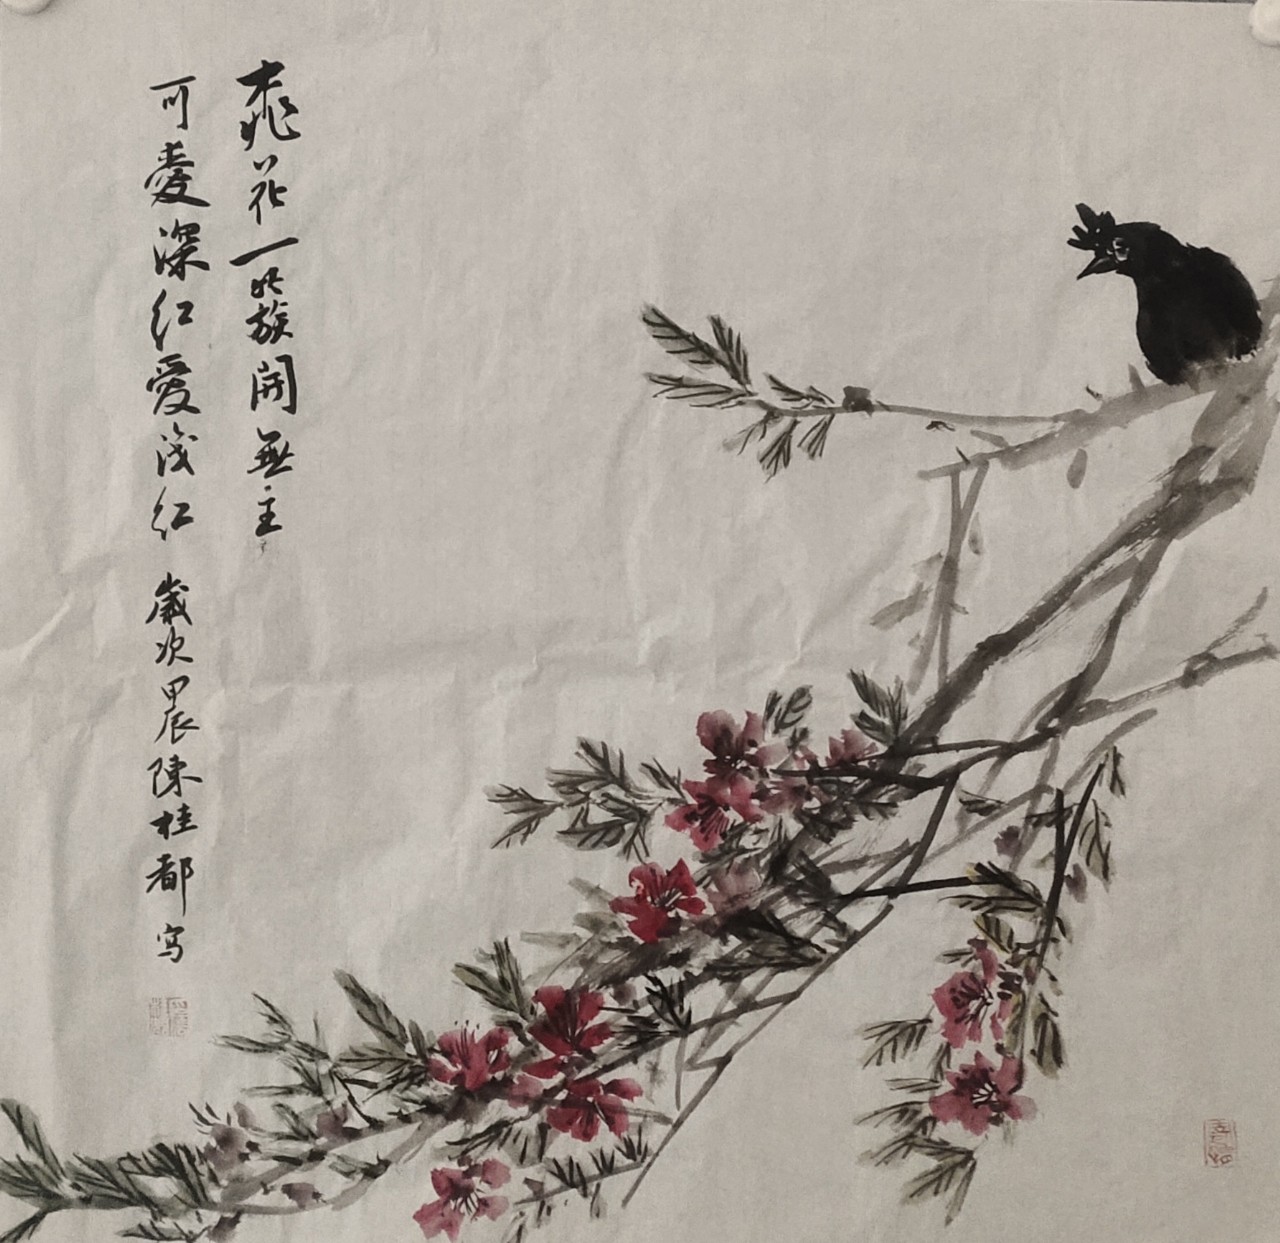 桃花一簇開無主
可愛深紅愛淺紅 歲次甲辰陳桂都写